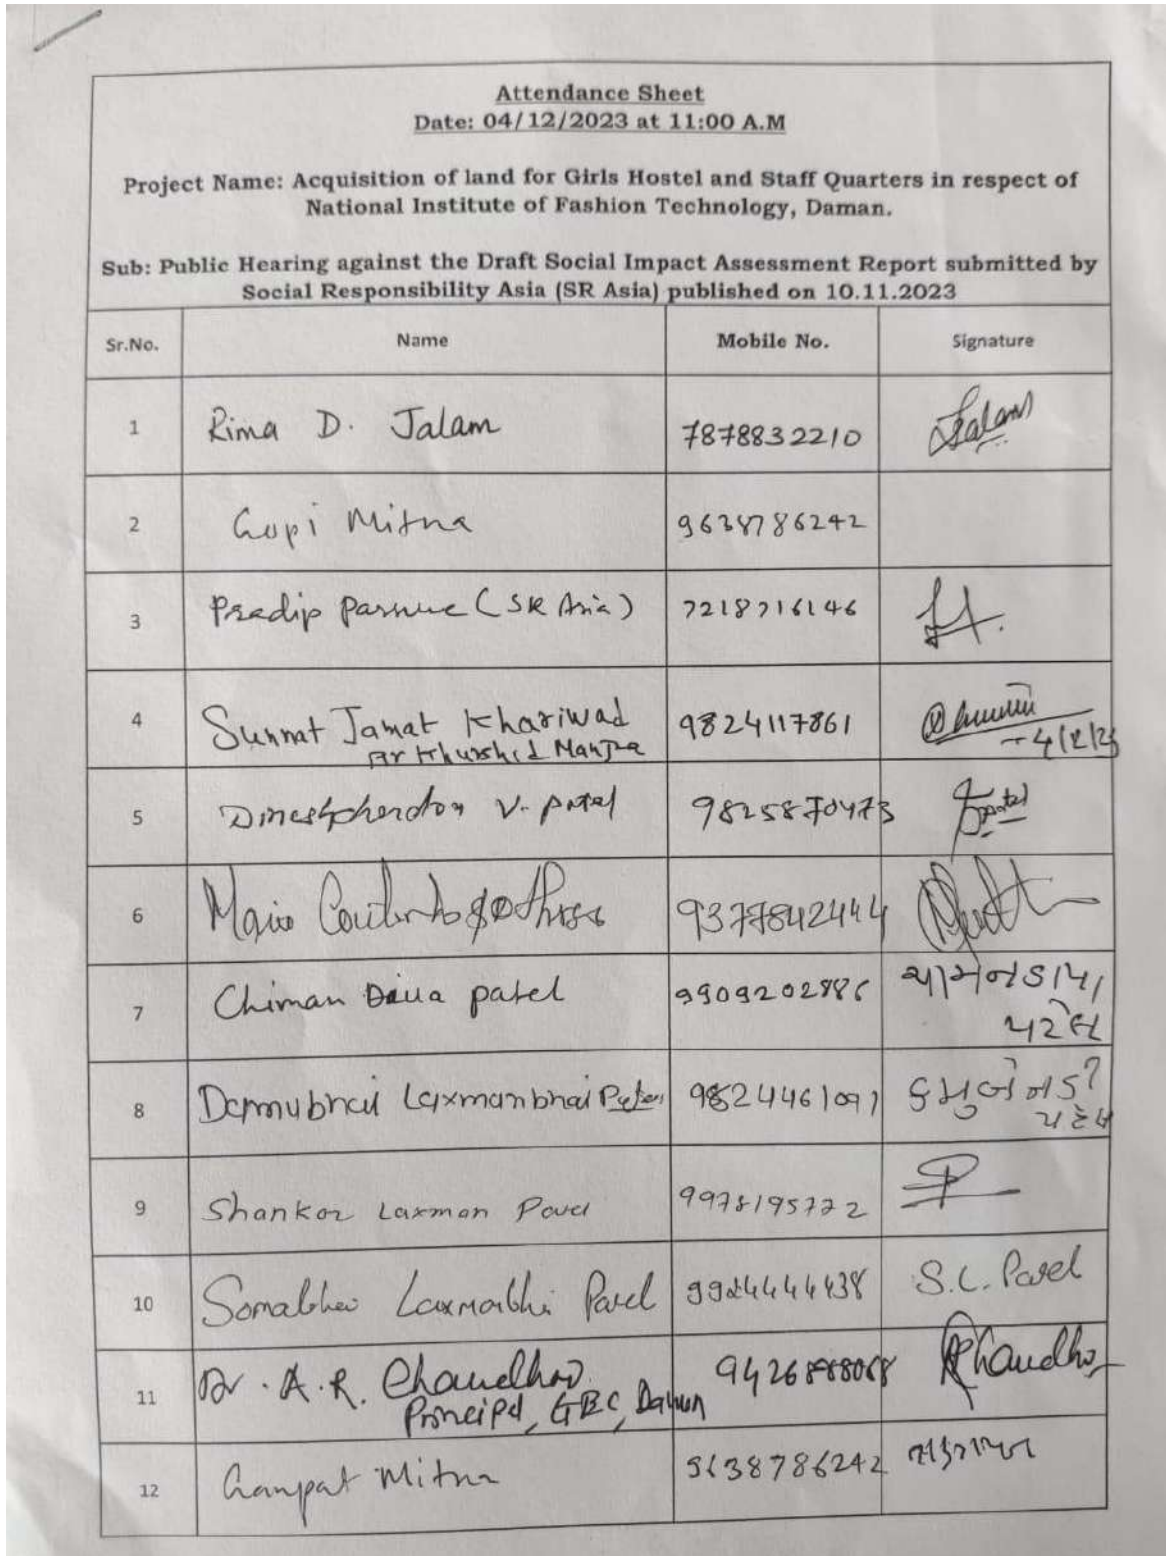 Attendance Sheet
Date: 04/12/2023 at 11:00 A.M
Project Name: Acquisition of land for Girls Hostel and Staff Quarters in respect of
National Institute of Fashion Technology, Daman.
Sub: Public Hearing against the Draft Social Impact Assessment Report submitted by
Social Responsibility Asia (SR Asia) published on 10.11.2023
Sr.No. Name Mobile No. Signature
1 Rima D. Jalam 7878832210 Jalam
2 Gopi Mitna 9638786242
3 Pradip (SR Asia) 7218716146
4 Sunnat Jamat Khariwad 9824117861
Khurshid 4/12/23
5 V. patel 9825870473
6 9377842444
7 Chiman patel 9909202886
પટેલ
8 Damubhai Laxmanbhai 9824461091
9 Shankar Laxman Patel 9978195722
10 Somabhai Patel 9924444438 S.L. Patel
11 Dr. A.R. Chaudhari
Principal, GEC, Daman
12 Ganpat Mitna 9638786242